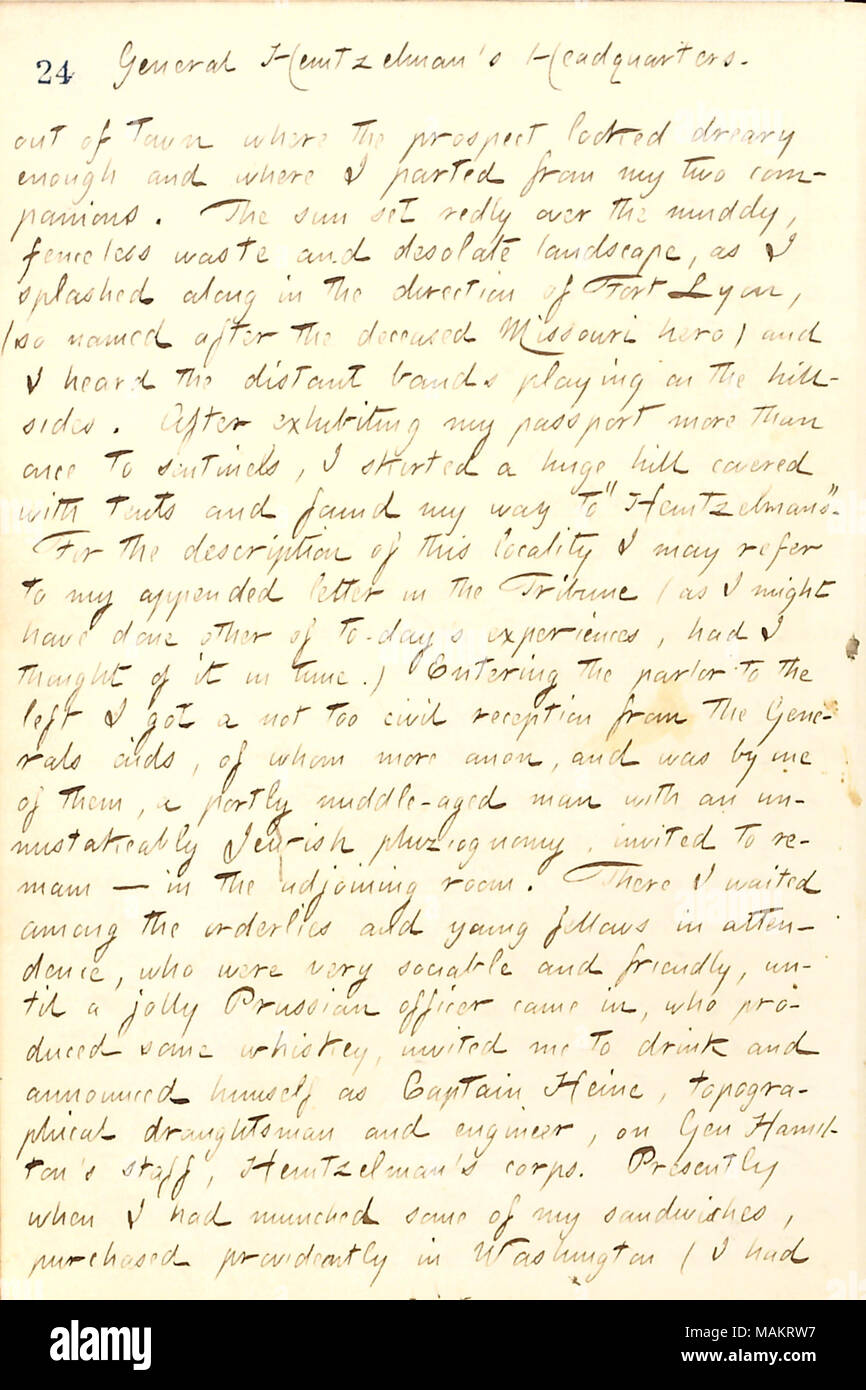 24 General Heintzelman's Headquarters.
out of town where the prospect looked dreary
enough and where I parted from my two com-
panions. The sun set redly over the muddy,
fenceless waste and desolate landscape, as I
splashed along in the direction of Fort Lyon,
(so named after the deceased Missouri hero) and
I heard the distant bands playing on the hill-
sides. After exhibiting my passport more than
once to sentinels, I skirted a huge hill covered
with tents and found my way to "Heintzelmans".
For the description of this locality I may refer
to my appended letter in the Tribune (as I might
have done other of to-day's experiences, had I
thought of it in time.) Entering the parlor to the
left I got a not too civil reception from the Gene-
rals aids, of whom more anon, and was by one
of them, a portly middle-aged man with an un-
mistakeably Jewish phiziognomy, invited to re-
main — in the adjoining room. There I waited
among the orderlies and young fellows in atten-
dence, who were very sociable and friendly, un-
til a jolly Prussian officer came in, who pro-
duced some whiskey, invited me to drink and
announced himself as Captain Heine, topogra-
phical draughtsman and engineer, on Gen Hamil-
ton's staff, Heintzelman's corps. Presently
when I had munched some of my sandwiches,
purchased providently in Washington (I had
alamy
Image ID: MAKRW7
www.alamy.com